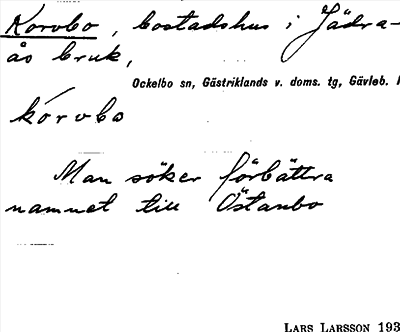 Korobo, bostadshus i Jädra-
ås bruk,
Ockelbo sn, Gästriklands v. doms. tg, Gävleb. l
kórobo
Man söker förbättra
namnet till Östanbo
LARS LARSSON 193